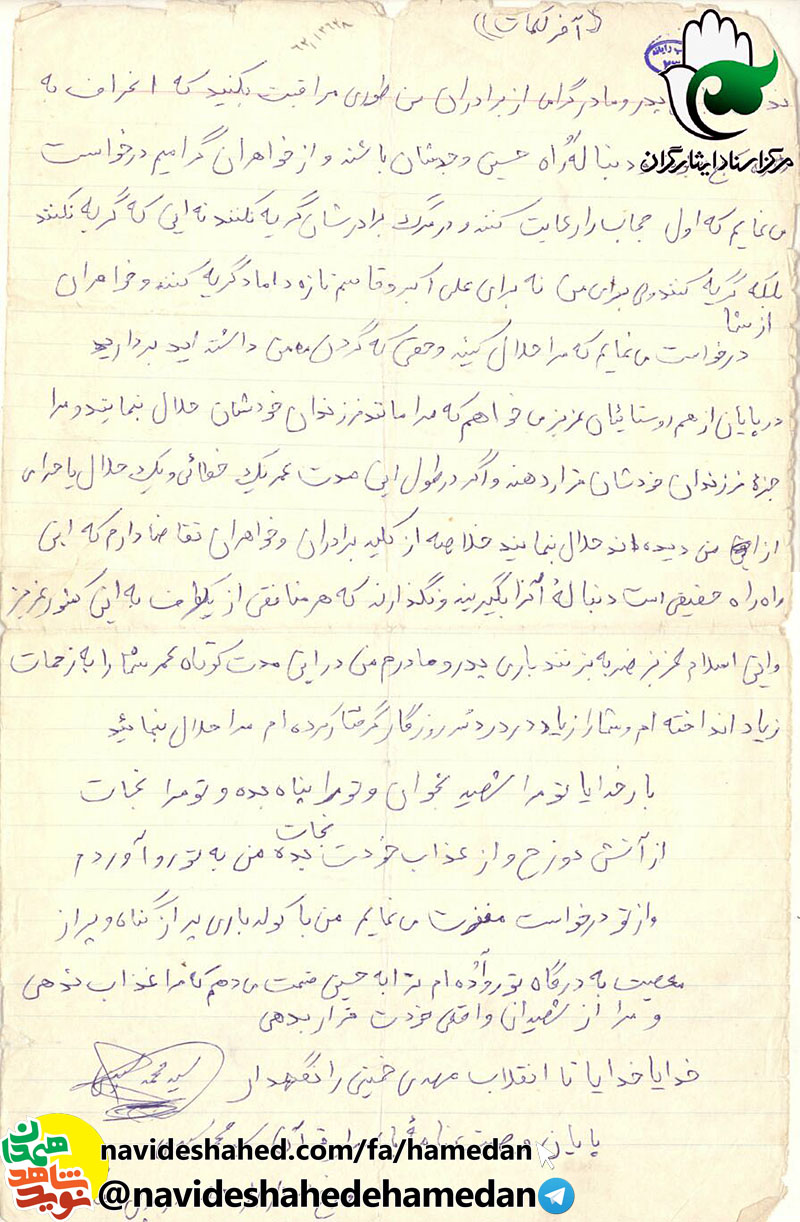 ((آخر کلمات))
۶۲,۱۳۶۲۸
پدر و مادر گرامی از برادران من طوری مراقبت بکنید که انحراف به
دنباله راه حسینی وجدشان باشند و از خواهران گرامیم درخواست
می نمایم که اول حجابشان را رعایت کنند و در مرگ برادرشان گریه نکنند نه این که گریه نکنند
بلکه گریه کنند ولی برای من نه برای علی اکبر و قاسم تازه داماد گریه کنند و خواهران
از شما
درخواست می نمایم که مرا حلال کنید و حقی که گردن من داشته اید بردارید
در پایان از هم روستائیان عزیز می خواهم که مرا مانند فرزندان خودشان حلال بنمایند و مرا
جزء فرزندان خودشان قرار دهند و اگر در طول این مدت عمر یک خطائی و یک حلال یا حرامی
از من دیده اند حلال بنمایند خلاصه از کلیه برادران و خواهران تقاضا دارم که این
راه راه حقیقی است دنباله آنرا بگیرند و نگذارند که هر منافقی از یکطرف به این کشور عزیز
و این اسلام عزیز ضربه بزنند باری پدر و مادرم من در این مدت کوتاه عمر شما را به زحمات
زیاد انداخته ام و شما را زیاد در درد روزگار گرفتار کرده ام مرا حلال بنمائید
بار خدایا تو مرا شهید بخوان و تو مرا پناه بده و تو مرا نجات
از آتش دوزخ و از عذاب خودت نجات بده من به تو رو آوردم
و از تو درخواست مغفرت می نمایم من با کوله باری پر از گناه و پر از
معصیت به درگاه تو رو آورده ام ترا به حسین قسمت می دهم که مرا عذاب ندهی
و مرا از شهیدان واقعی خودت قرار بدهی
خدایا خدایا تا انقلاب مهدی خمینی را نگهدار
سید محمد
پایان وصیت نامه
مرکز اسناد ایثارگران
نوید شاهد همدان
navideshahed.com/fa/hamedan
@navideshahedehamedan